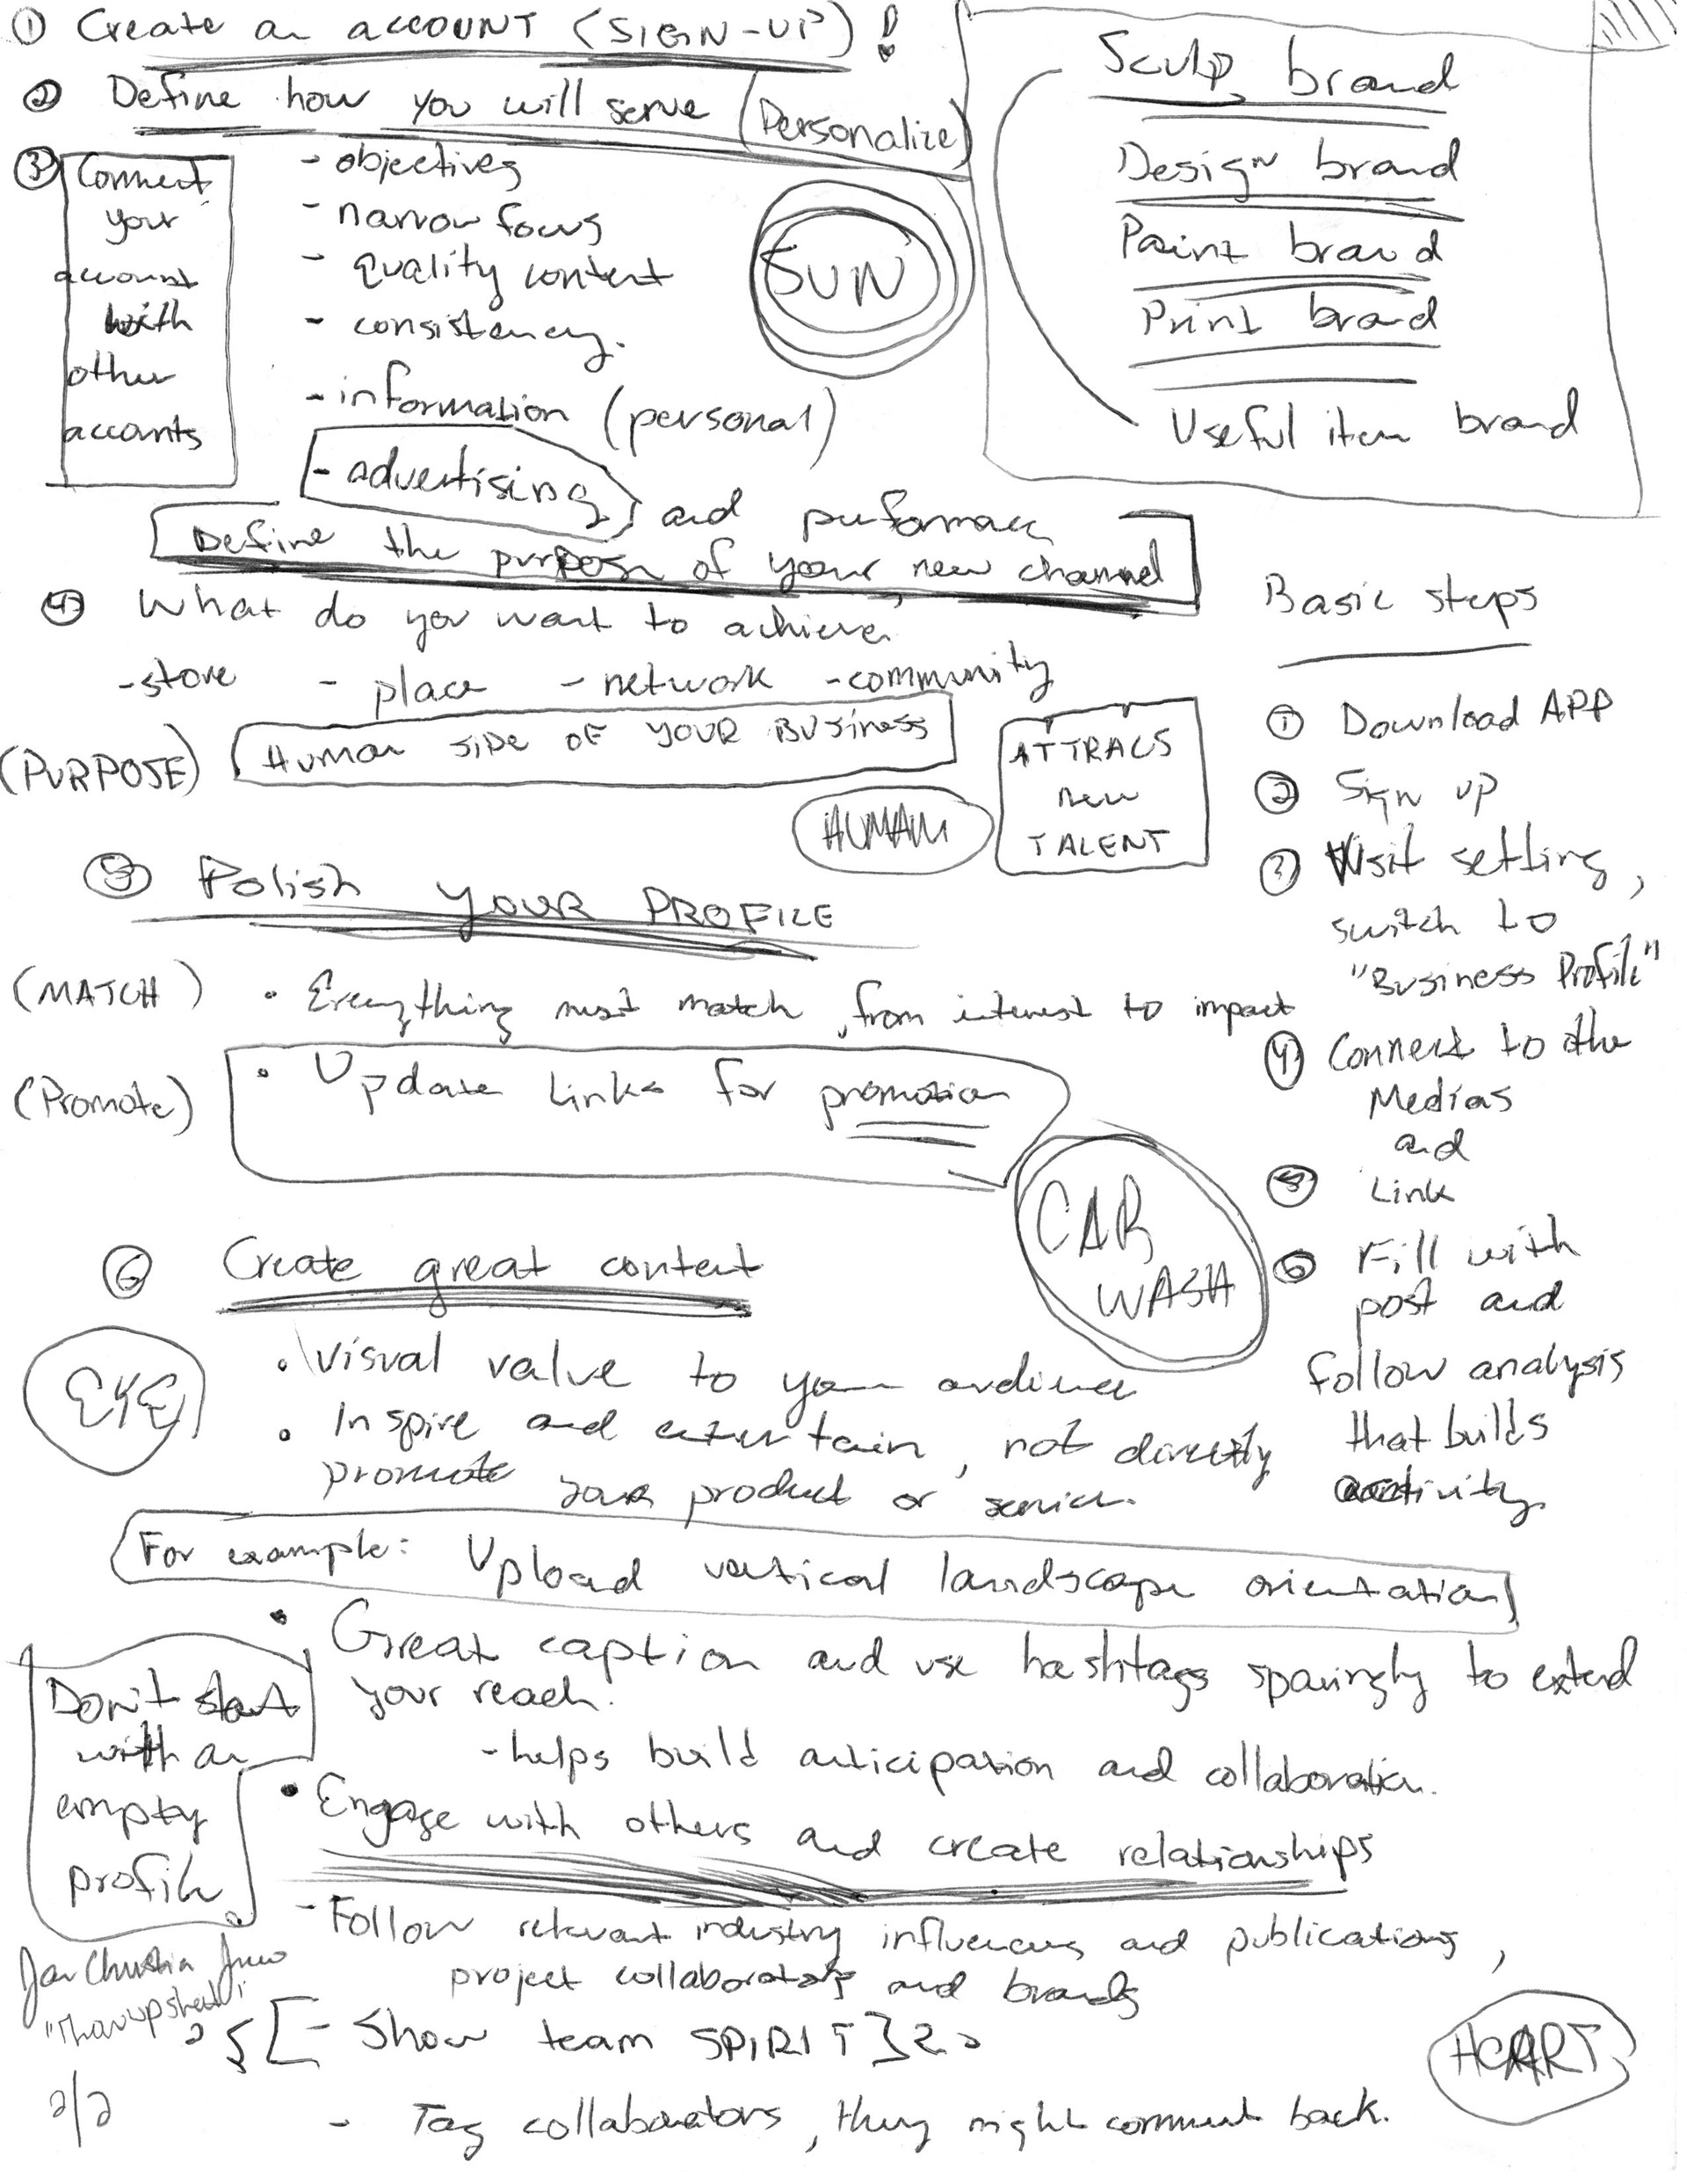 ① Create an account (SIGN-UP)!
② Define how you will serve (Personalize)
③ Connect
your
account
with
other
accounts
- objectives
- narrow focus
- quality content
- consistency.
- information (personal)
- advertising and performance
SUN
Sculp, brand
Design brand
Paint brand
Print brand
Useful item brand
Define the purpose of your new channel
④ What do you want to achieve,
- store - place - network - community
(PURPOSE) Human side of YOUR BUSiness
HUMAN
ATTRACS
new
TALENT
⑤ Polish YOUR PROFILE
(MATCH) • Everything must match, from interest to impact
(Promote) • Update Links for promotion
CAR
WASH
⑥ Create great content
EYE
• Visual value to your audience
• Inspire and entertain, not directly
promote your product or service.
For example: Upload vertical landscape orientation
• Great caption and use hashtags sparingly to extend
your reach.
- helps build anticipation and collaboration.
Don't start
with an
empty
profile.
• Engage with others and create relationships
- Follow relevant industry influencers and publications,
project collaborators and brands
{[- Show team SPIRIT]}
- Tag collaborators, they might comment back.
HEART
Jan Christian
2/2
Basic steps
① Download APP
② Sign up
③ Visit setting,
switch to
"Business Profile"
④ Connect to the
Medias
and
⑤ Link
⑥ Fill with
post and
follow analysis
that builds
activity.